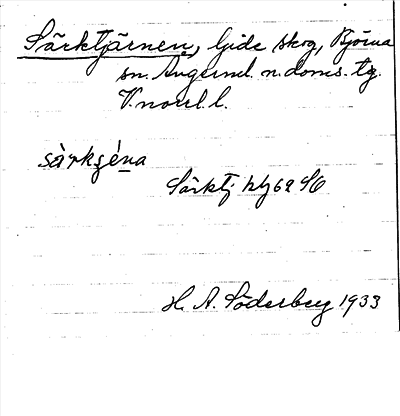 Särktjärnen, Gide skog, Björna
sn. Ångerml. n. doms. tg.
V.norrl. l.
sàrkʂéna
Särktj hbg 62 SO
H. A. Söderberg 1933